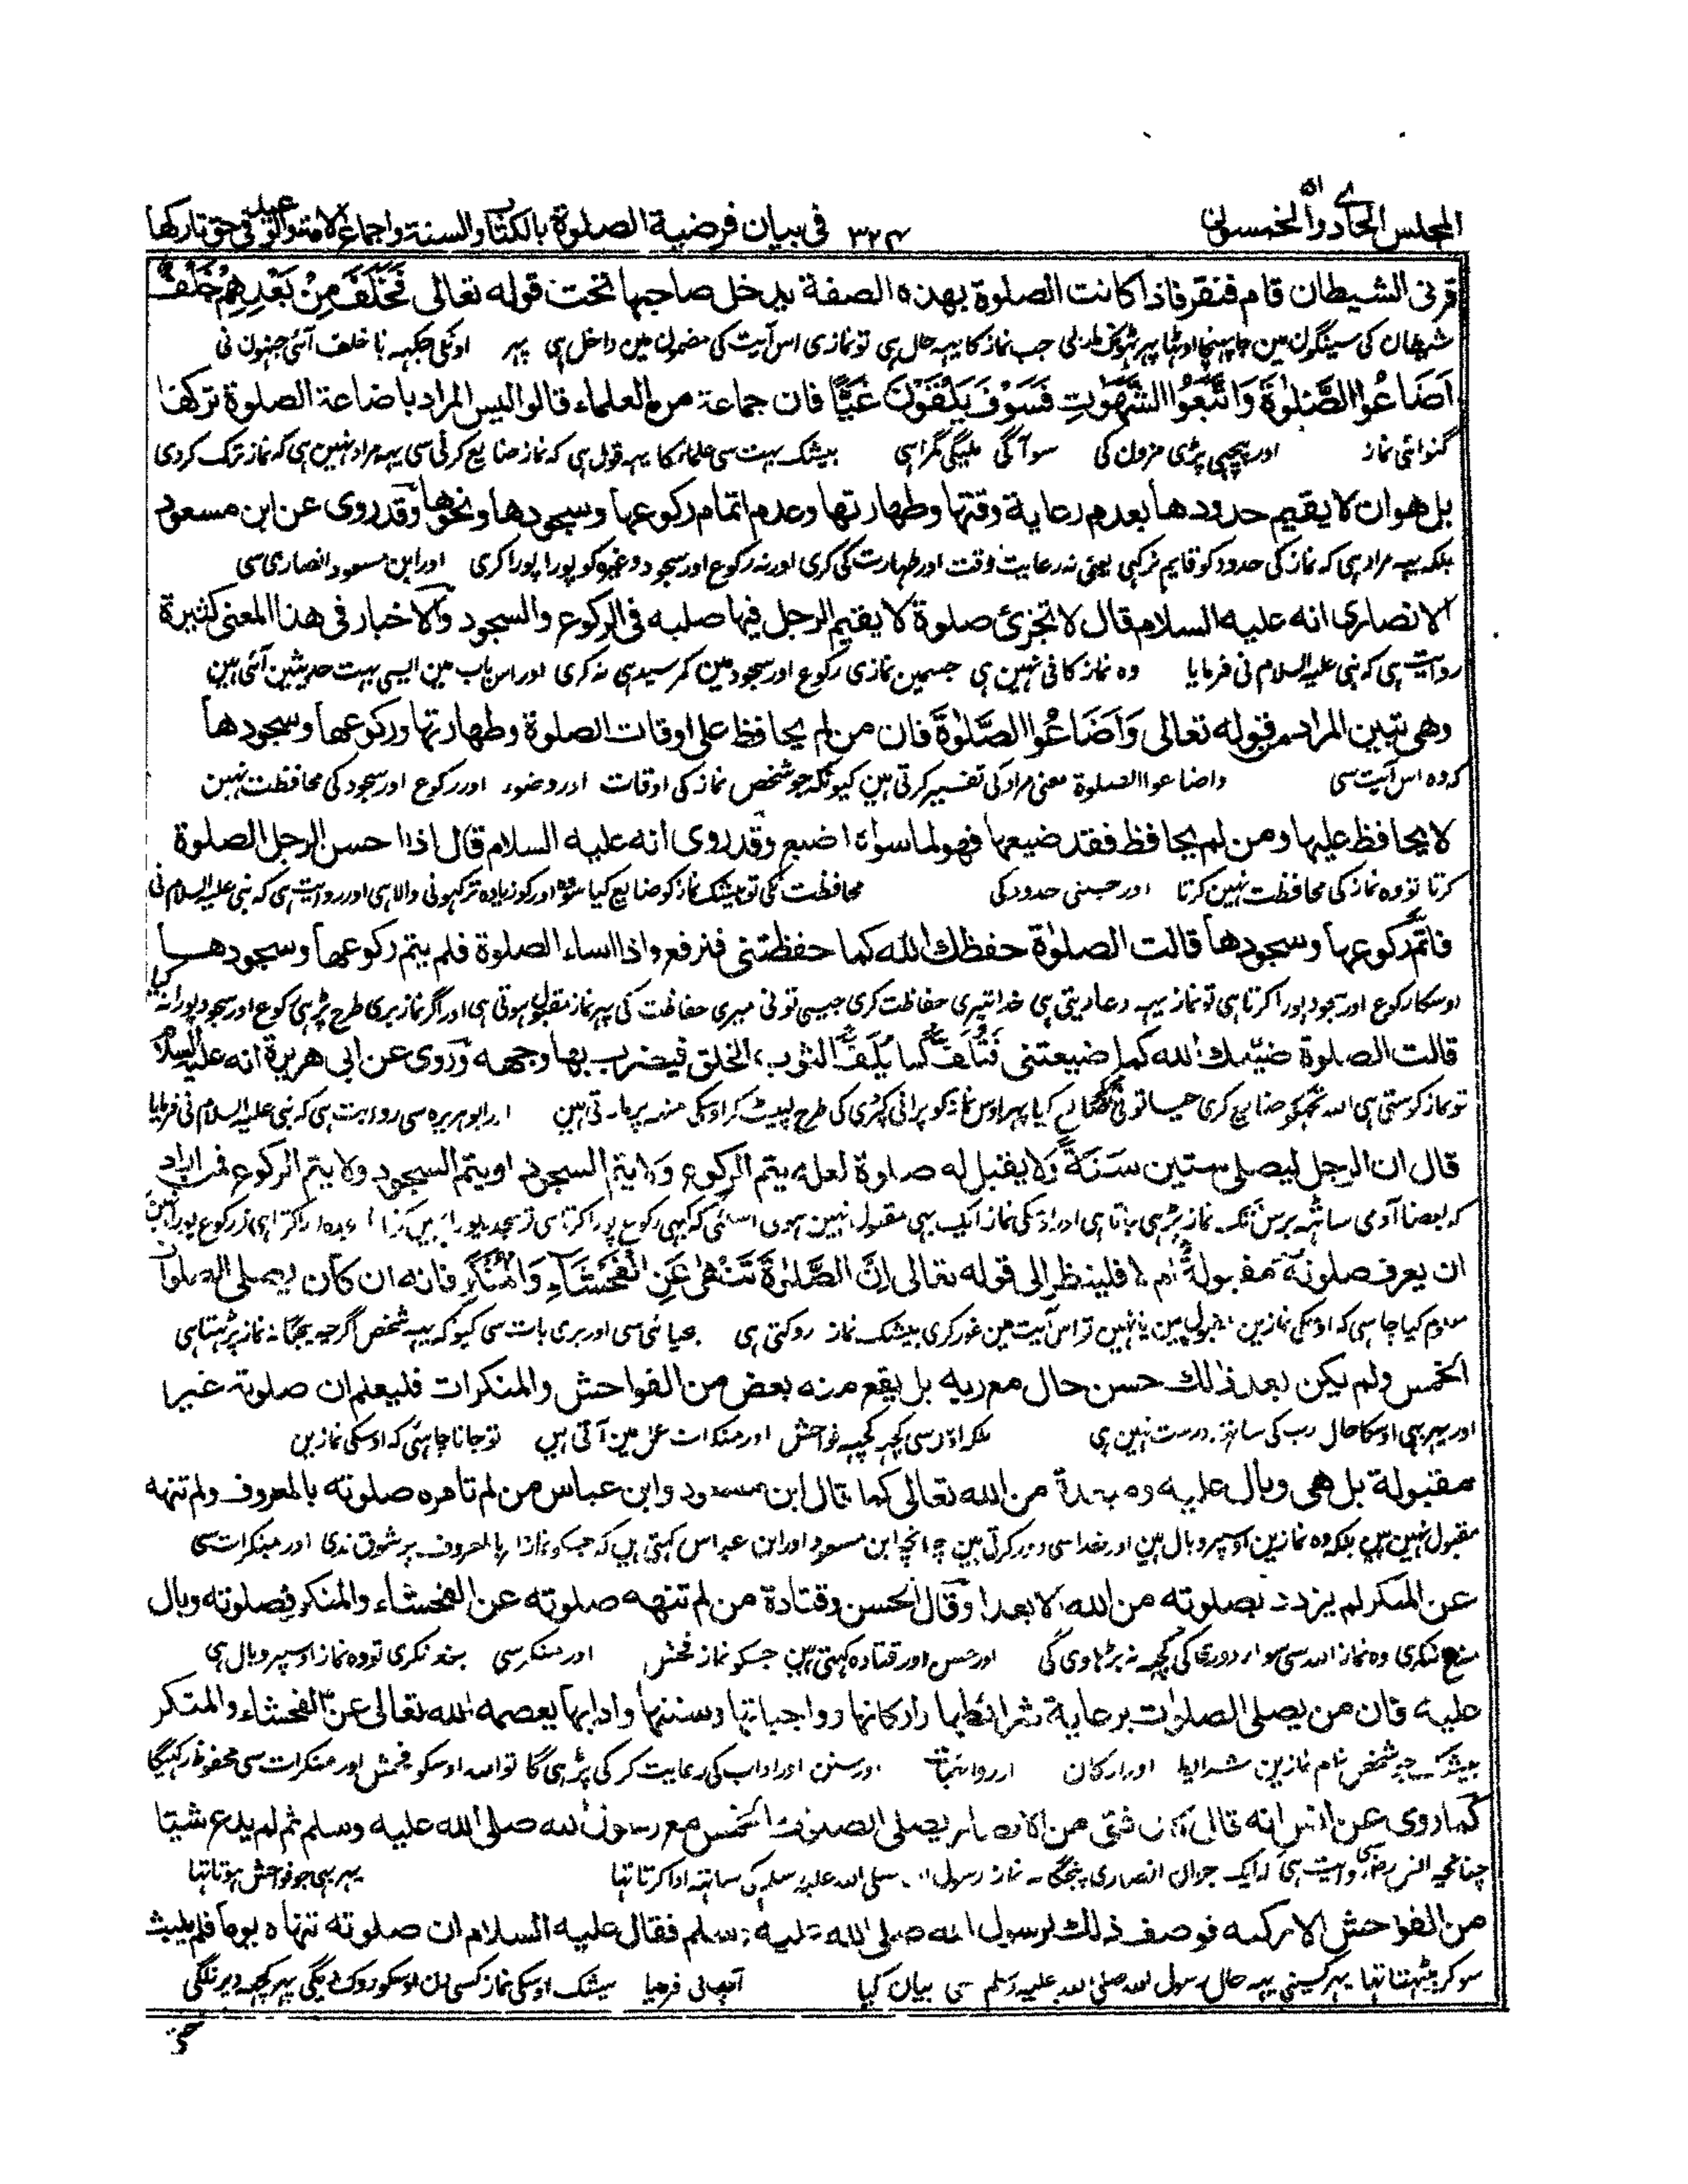 المجلس الحادی والخمسون ۵۱
۳۲۴
فی بیان فرضیة الصلوة بالکتاب والسنة واجماع الامة والوعید فی حق تارکها
قرنی الشیطان قام فنقر فاذا کانت الصلوة بهذه الصفة یدخل صاحبها تحت قوله تعالی فَخَلَفَ مِنْ بَعْدِهِمْ خَلْفٌ
شیطان کی سینگون مین جا پہنچا اوٹھا پہر جب نماز کا یہہ حال ہی تو نمازی اس آیت کی مضمون مین داخل ہی پہر اونکی جگہہ نا خلف آئی جنہون نی
اَضَاعُوا الصَّلٰوةَ وَاتَّبَعُوا الشَّهَوٰتِ فَسَوْفَ یَلْقَوْنَ غَیًّا فان جماعة من العلماء قالوا لیس المراد باضاعة الصلوة ترکها
گنوائی نماز اور پیچہی پڑی مزون کی سو آگی ملیگی گمراہی بیشک بہت سی علماء کا یہہ قول ہی کہ نماز ضایع کرنی سی یہہ مراد نہین ہی کہ نماز ترک کردی
بل هو ان لا یقیم حدودها بعدم رعایة وقتها وطهارتها وعدم اتمام رکوعها وسجودها ونحوها وقد روی عن ابن مسعود
بلکہ یہہ مراد ہی کہ نماز کی حدود کو قایم نرکہی یعنی نہ رعایت وقت اور طہارت کی کری اور نہ رکوع اور سجود وغیرہ کو پورا پورا کری اور ابن مسعود انصاری سی
الانصاری انه علیه السلام قال لا تجزئ صلوة لا یقیم الرجل فیها صلبه فی الرکوع والسجود والاخبار فی هذا المعنی کثیرة
روایت ہی کہ نبی علیہ السلام نی فرمایا وہ نماز کافی نہین ہی جسمین نمازی رکوع اور سجود مین کمر سیدہی نہ کری اور اس باب مین ایسی بہت حدیثین آئی ہین
وهی تبین المراد من قوله تعالی وَاَضَاعُوا الصَّلٰوةَ فان من لم یحافظ علی اوقات الصلوة وطهارتها ورکوعها وسجودها
کہ وہ اس آیت سی واضاعوا الصلوة معنی مراد کی تفسیر کرتی ہین کیونکہ جو شخص نماز کی اوقات اور وضوء اور رکوع اور سجود کی محافظت نہین
لا یحافظ علیها ومن لم یحافظ فقد ضیعها فهو لما سواه اضیع وقد روی انه علیه السلام قال اذا احسن الرجل الصلوة
کرتا تو وہ نماز کی محافظت نہین کرتا اور جسنی حدود کی محافظت نکی تو بیشک نماز کو ضایع کیا اور روایت ہی کہ نبی علیہ السلام نی
فاتم رکوعها وسجودها قالت الصلوة حفظك الله کما حفظتنی فترفع واذا اساء الصلوة فلم یتم رکوعها وسجودها
اوسکا رکوع اور سجود پورا کرتا ہی تو نماز یہہ دعا دیتی ہی خدا تیری حفاظت کری جیسی تونی میری حفاظت کی پہر نماز مقبول ہوتی ہی اور اگر نماز بری طرح پڑہی رکوع اور سجود پورا نہ کیا
قالت الصلوة ضیعك الله کما ضیعتنی فتلف کما یلف الثوب الخلق فیضرب بها وجهه وروی عن ابی هریرة انه علیه السلام
تو نماز کوستی ہی اللہ تجہکو ضایع کری جیسا تونی کیا پہر اوس نماز کو پرانی کپڑی کی طرح لپیٹ کر اوسکی منہہ پر مارتی ہین اور ابو ہریرہ سی روایت ہی کہ نبی علیہ السلام نی فرمایا
قال ان الرجل لیصلی ستین سَنَةً ولا یقبل له صلوة لعله یتم الرکوع ولا یتم السجود او یتم السجود ولا یتم الرکوع فمن اراد
کہ بعضا آدمی ساٹہہ برس تک نماز پڑہی جاتا ہی اور اوسکی نماز ایک بہی مقبول نہین ہوتی کہ کبہی رکوع پورا کرتا ہی تو سجدہ پورا نہین کرتا
ان یعرف صلوته مقبولة ام لا فلینظر الی قوله تعالی اِنَّ الصَّلٰوةَ تَنْهٰی عَنِ الْفَحْشَآءِ وَالْمُنْکَرِ فانه ان کان یصلی الصلوات
معلوم کیا چاہی کہ اوسکی نمازین مقبول ہین یا نہین تو اس آیت مین غور کری بیشک نماز روکتی ہی بیحیائی سی اور بری بات سی کیونکہ یہہ شخص اگرچہ پنجگانہ نماز پڑہتا ہی
الخمس ولم یکن بعد ذلك حسن حال مع ربه بل یقع منه بعض من الفواحش والمنکرات فلیعلم ان صلوته غیر
اور پہر بہی اوسکا حال رب کی ساتہہ درست نہین ہی بلکہ اوس سی کچہہ کچہہ فواحش اور منکرات عمل مین آتی ہین تو جانا چاہئی کہ اوسکی نمازین
مقبولة بل هی وبال علیه ومبعدة من الله تعالی کما قال ابن مسعود وابن عباس من لم تامره صلوته بالمعروف ولم تنهه
مقبول نہین ہین بلکہ وہ نمازین اوسپر وبال ہین اور خدا سی دور کرتی ہین چنانچہ ابن مسعود اور ابن عباس کہتی ہین کہ جسکو نماز امر بالمعروف پر شوق ندی اور منکرات سی
عن المنکر لم یزدد بصلوته من الله الا بعدا وقال الحسن وقتادة من لم تنهه صلوته عن الفحشاء والمنکر فصلوته وبال
منع نکری وہ نماز اللہ سی سوا دوری کی کچہہ نہ بڑہاوی گی اور حسن اور قتادہ کہتی ہین جسکو نماز فحش اور منکر سی بند نکری تو وہ نماز اوسپر وبال ہی
علیه فان من یصلی الصلوات برعایة شرائطها وارکانها وواجباتها وسننها وادابها یعصمه الله تعالی عن الفحشاء والمنکر
بیشک جو شخص تمام نمازین شرایط اور ارکان اور واجبات اور سنن اور اداب کی رعایت کر کی پڑہی گا تو اللہ اوسکو فحش اور منکرات سی محفوظ رکہیگا
کما روی عن انس انه قال کان فتی من الانصار یصلی الصلوات الخمس مع رسول الله صلی الله علیه وسلم ثم لم یدع شیئا
چنانچہ انس رضی سی روایت ہی کہ ایک جوان انصاری پنجگانہ نماز رسول اللہ صلی اللہ علیہ وسلم کی ساتہہ ادا کرتا تہا پہر بہی جو فواحش ہوتا تہا
من الفواحش الا رکبه فوصف ذلك لرسول الله صلی الله علیه وسلم فقال علیه السلام ان صلوته تنهاه یوما فلم یلبث
سو کر بیٹہتا تہا پہر کسینی یہہ حال رسول اللہ صلی اللہ علیہ وسلم سی بیان کیا آپ نی فرمایا بیشک اوسکی نماز کسی دن اوسکو روک دیگی پہر کچہہ دیر نلگی